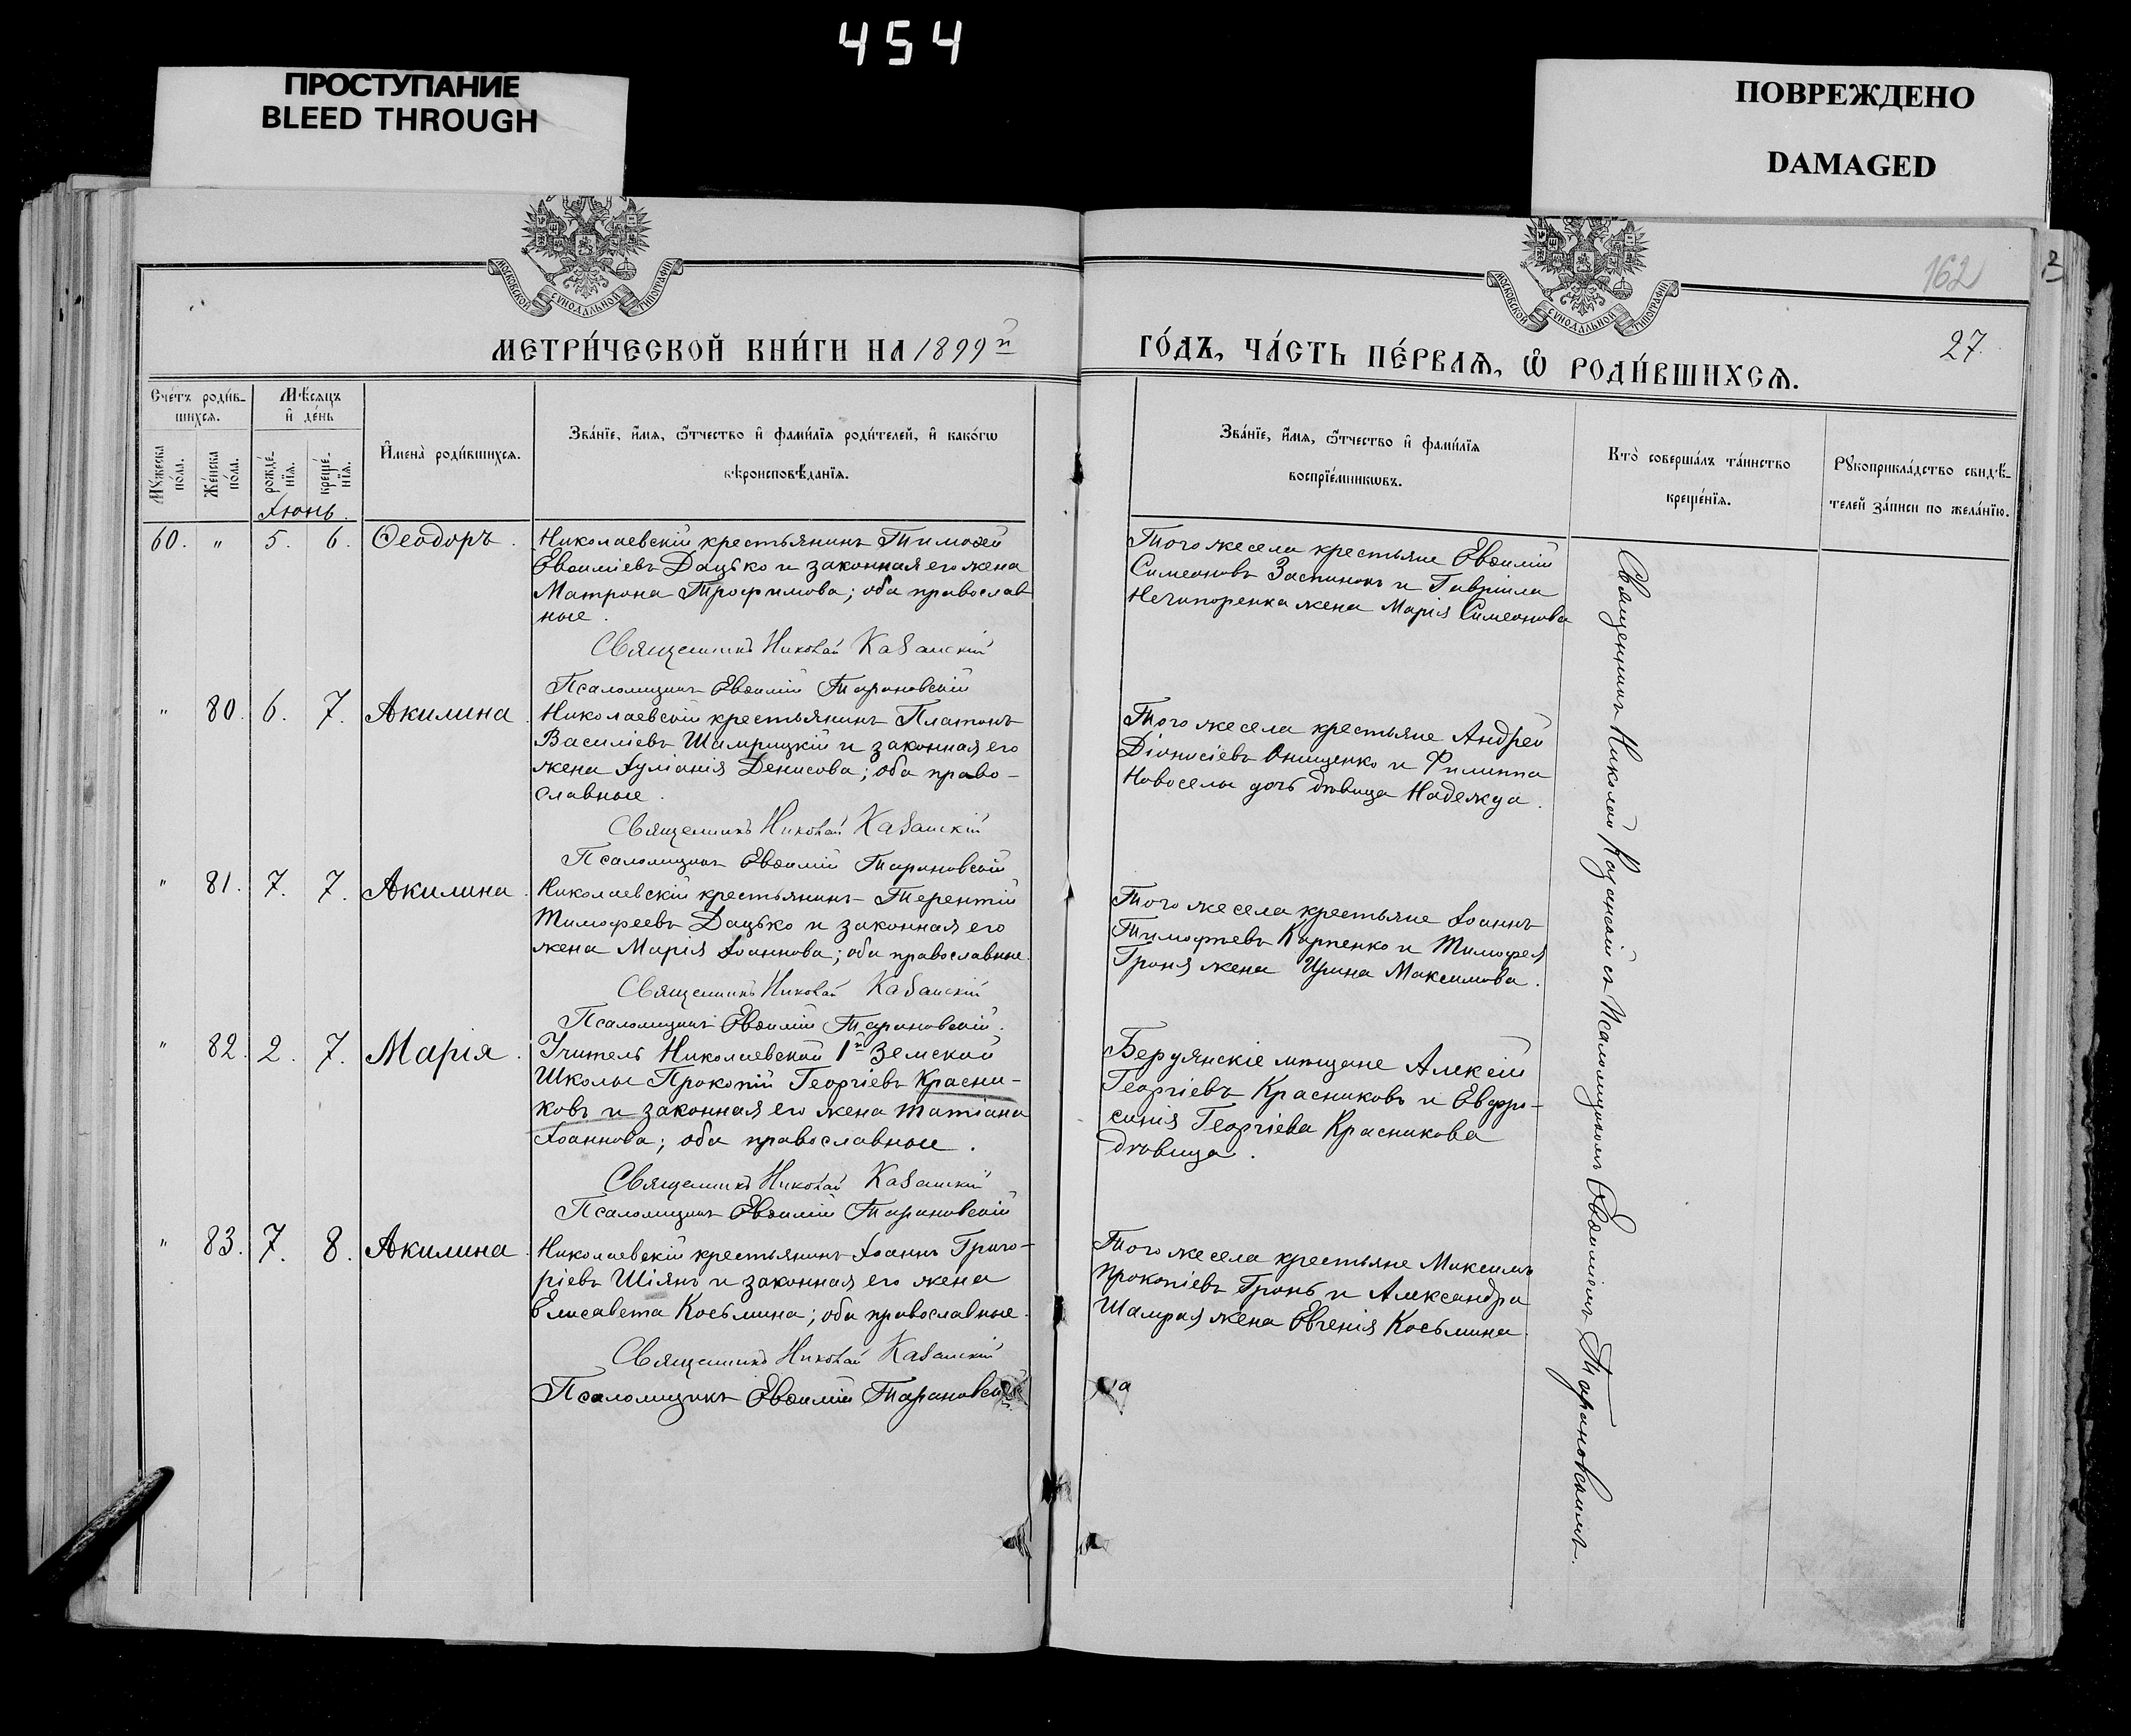 454
ПРОСТУПАНИЕ
BLEED THROUGH
ПОВРЕЖДЕНО
DAMAGED
МОСКОВСКОЙ СѴНОДАЛЬНОЙ ТИПОГРАФІИ
МОСКОВСКОЙ СѴНОДАЛЬНОЙ ТИПОГРАФІИ
162
27.
МЕТРИ́ЧЕСКОЙ КНИ́ГИ НА 1899й
ГО́ДЪ, ЧА́СТЬ ПЕ́РВАѦ, Ѡ҆ РОДИ́ВШИХСѦ.
Сче́тъ роди́в-
шихсѧ.
Мѣ́сѧцъ
и҆ де́нь
Мꙋ́жеска
по́ла.
Же́нска
по́ла.
рожде́-
нїѧ.
креще́-
нїѧ.
И҆мена̀ роди́вшихсѧ.
Зва́нїе, и҆́мѧ, ѻ҆́тчество и҆ фами́лїѧ роди́телей, и҆ како́гѡ
вѣроисповѣ́данїѧ.
Зва́нїе, и҆́мѧ, ѻ҆́тчество и҆ фами́лїѧ
воспрїе́мникѡвъ.
Кто̀ соверша́лъ та́инство
креще́нїѧ.
Рꙋкоприкла́дство свидѣ́-
телей за́писи по жела́нїю.
Іюнь.
60. " 5. 6. Ѳеодоръ.
Николаевскій крестьянинъ Тимоѳей
Евѳиміевъ Дацько и законная его жена
Матрона Трофимова; оба православ
ные.
Священникъ Николай Казанскій
Псаломщикъ Евѳимій Тарановскій
Того же села крестьяне Евѳимій
Симеоновъ Заспинокъ и Гавріила
Нечипоренка жена Марія Симеонова
" 80. 6. 7. Акилина.
Николаевскій крестьянинъ Платонъ
Василіевъ Шамрицкій и законная его
жена Іуліанія Денисова; оба право-
славные.
Священникъ Николай Казанскій
Псаломщикъ Евѳимій Тарановскій
Того же села крестьяне Андрей
Діонисіевъ Онищенко и Филиппа
Новоселы дочь дѣвица Надежда.
" 81. 7. 7. Акилина.
Николаевскій крестьянинъ Терентій
Тимофеевъ Дацько и законная его
жена Марія Іоаннова; оба православные.
Священникъ Николай Казанскій
Псаломщикъ Евѳимій Тарановскій.
Того же села крестьяне Іоаннъ
Тимофѣевъ Карпенко и Тимофея
Гроня жена Ирина Максимова.
" 82. 2. 7. Марія.
Учитель Николаевской 1й Земской
Школы Прокопій Георгіевъ Красни-
ковъ и законная его жена Татіана
Іоаннова; оба православные.
Священникъ Николай Казанскій
Псаломщикъ Евѳимій Тарановскій
Бердянскіе мѣщане Алексій
Георгіевъ Красниковъ и Евфро-
синія Георгіева Красникова
дѣвица.
" 83. 7. 8. Акилина.
Николаевскій крестьянинъ Іоаннъ Григо-
ріевъ Шіянъ и законная его жена
Елисавета Косьмина; оба православные.
Священникъ Николай Казанскій
Псаломщикъ Евѳимій Тарановскій
Того же села крестьяне Максимъ
Прокопіевъ Гронь и Александра
Шамрая жена Евгенія Косьмина.
Священникъ Николай Казанскій съ Псаломщикомъ Евѳиміемъ Тарановскимъ.